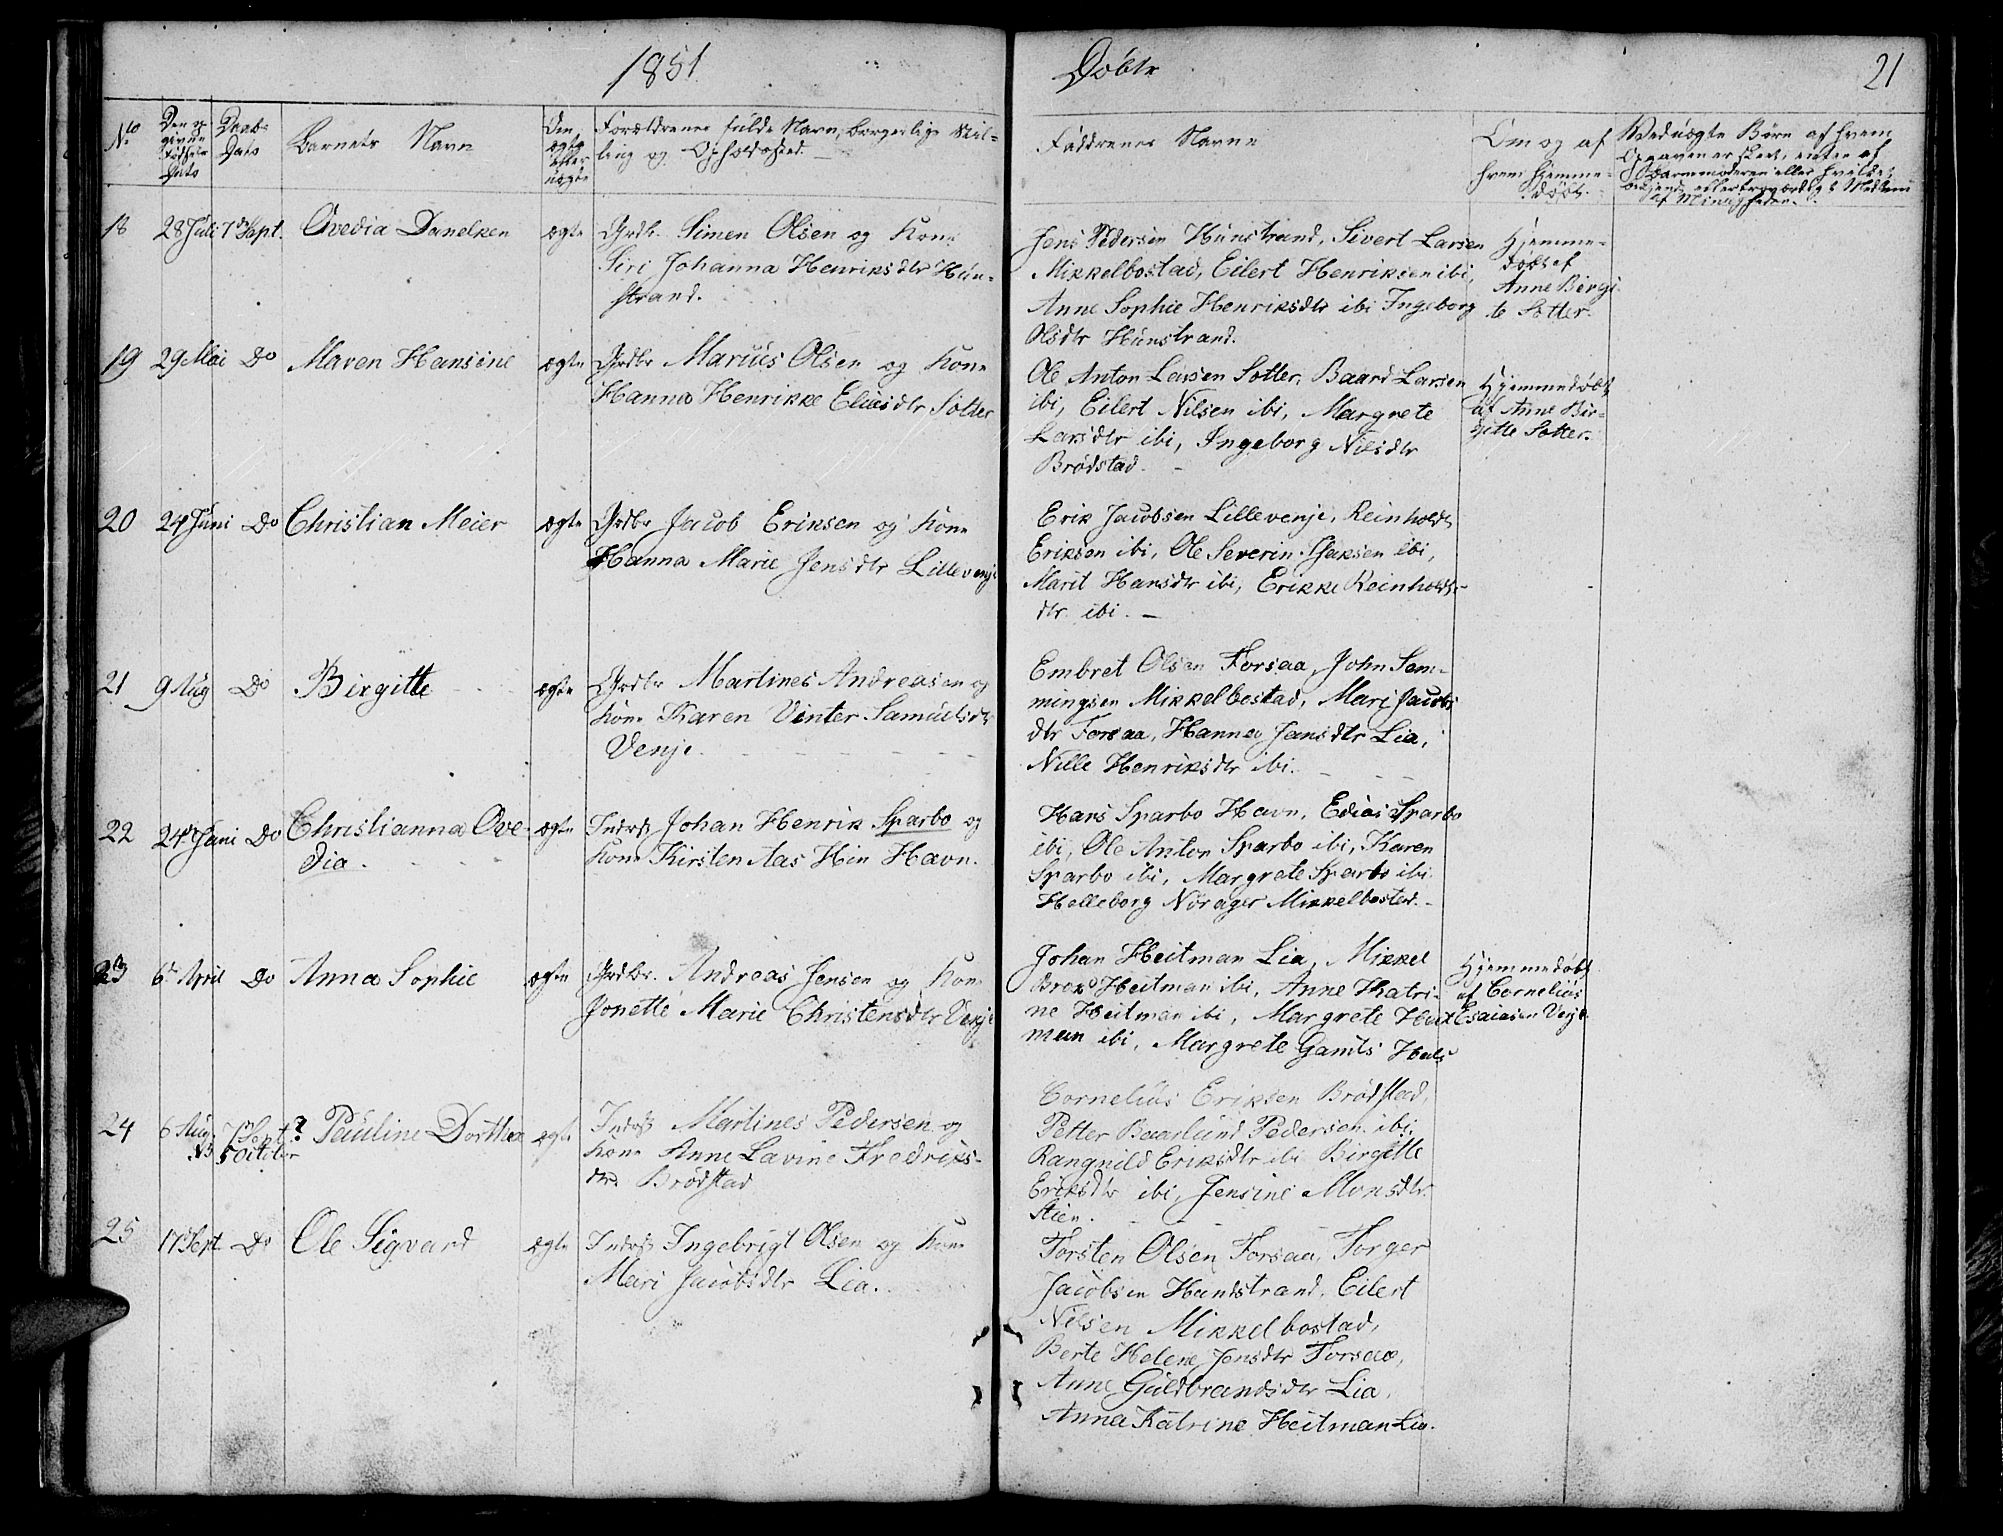 1851 Döbte 21
No Den op givne Födsels Dato Daabs Dato Barnets Navn Om ægte eller uægte Forældrenes fulde Navn, borgerlige Stil-
ling og Opholdssted. Faddrenes Navne Om og af hvem hjemme-döbt. Ved uægte Börn af hvem
18 28 Juli 7de Sept. Ovedia Danelken ægte Grdbr. Simen Olsen og Kone
Siri Johanna Henriksdtr Hun-
strand.
Jens Pedersen Hunstrand, Sivert Larsen
Mikkelbostad, Eilert Henriksen ibi,
Anne Sophie Henriksdtr ibi Ingeborg
Olsdtr Hunstrand.
Hjemme-
döbt af
Anne Birgi
te Sotter.
19 29 Mai Do Maren Hansine ægte Grdbr Marius Olsen og Kone
Hanna Henrikke Eliasdtr Sotter
Ole Anton Larsen Sotter, Baard Larsen
ibi, Eilert Nilsen ibi, Margrete
Larsdtr ibi, Ingeborg Nilsdtr
Brödstad. -
Hjemmedöbt
af Anne Bir-
gitte Sotter.
20 24 Juni Do Christian Meier ægte Grdbr Jacob Eriksen og Kone
Hanna Marie Jensdtr Lillevenje
Erik Jacobsen Lillevenje, Reinholdt
Eriksen ibi, Ole Severin Isaksen ibi,
Marit Hansdtr ibi, Erikke Reinholdts-
dtr ibi. -
21 9 Aug Do Birgitte ægte Grdbr Martines Andreasen og
Kone Karen Vinter Samuelsdtr
Venje.
Embret Olsen Forsaa, John Sem-
mingsen Mikkelbostad, Mari Jacobs
dtr Forsaa, Hanna Jensdtr Lia,
Nille Henriksdtr ibi.
22 24de Juni Do Christianna Ove-
dia. ægte Inderst Johan Henrik Sparbo og
Kone Kirsten Aas Hin Havn.
Hans Sparbo Havn, Edias Sparbo
ibi, Ole Anton Sparbo ibi, Karen
Sparbo ibi, Margrete Sparbo ibi
Helleborg Norager Mikkelbostad. -
23 6te April Do Anna Sophie ægte Grdbr. Andreas Jensen og Kone
Jonette Marie Christensdtr Venje
Johan Heitman Lia, Mikkel
Brok Heitman ibi, Anne Katri-
ne Heitman ibi, Margrete Heit
man ibi, Margrete Gamts Hals
Hjemmedöbt
af Cornelius
Esaiasen Venje
24 6 Aug 7de Sept? Pauline Dorthea ægte Inderst Martines Pedersen og
NB 5 October Kone Anne Lavine Fredriks-
dtr Brödstad
Cornelius Eriksen Brödstad,
Petter Baarlund Pedersen ibi,
Rangnild Eriksdtr ibi Birgitte
Eriksdtr ibi, Jensine Monsdtr
Stien.
25 17 Sept Do Ole Sigvard ægte Inderst Ingebrigt Olsen og Kone
Mari Jacobsdtr Lia.
Torsten Olsen Forsaa, Torger
Jacobsen Hundstrand, Eilert
Nilsen Mikkelbostad,
Berte Helene Jensdtr Forsaa,
Anne Guldbrandsdtr Lia,
Anna Katrine Heitman Lia.